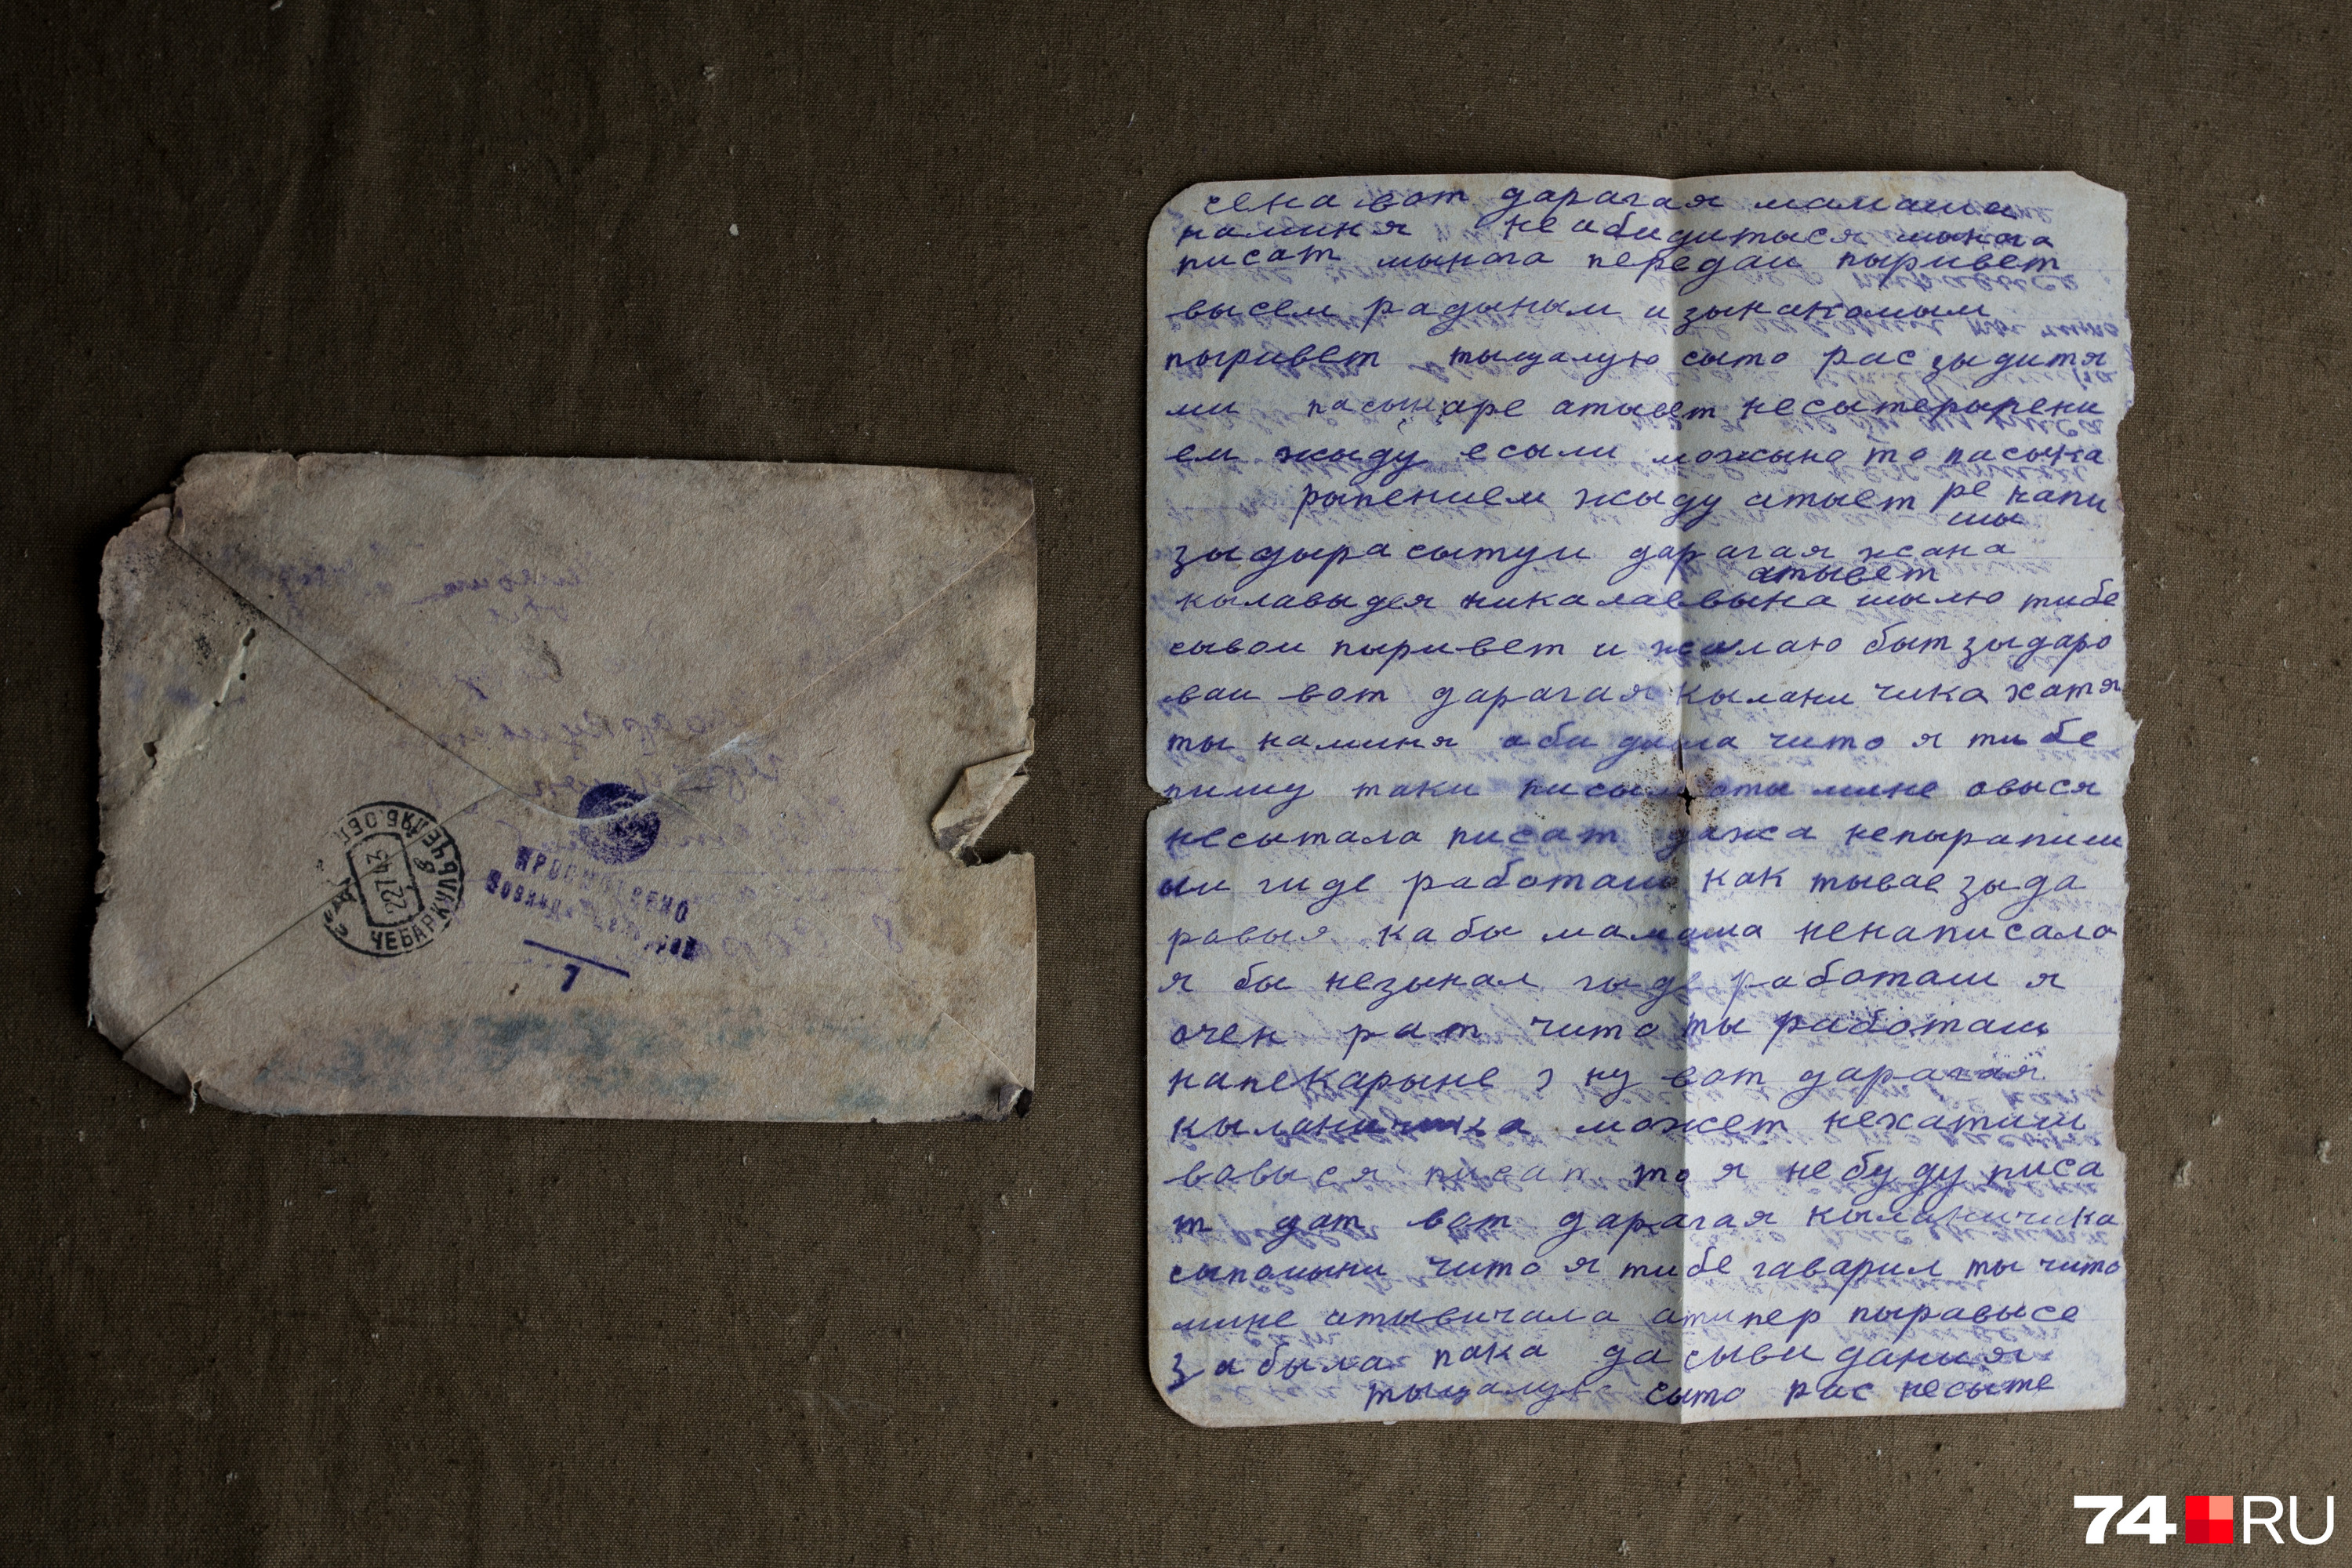 ЧЕБАРКУЛЬ ЧЕЛЯБ.ОБЛ.
22 7 43
ПРОСМОТРЕНО
7
сена вот дарагая мамаша
наминя не абидитыся мынога
писат мынога передаи пыривет
высем радыным и зынакомым
пыривет тыцалую сыто рас зыдитя
ми пасыкаре атывет несытерыпени
ем жыду есыли можына то пасыка
рыпением жыду атывет ре напи
шы
зыдырасытуи дарагая жана
атывет
кылавыдея никалаевына шылю тибе
сывои пыривет и жилаю быт зыдаро
ваи вот дарагая кыланичика хатя
ты наминя абидила чито я тибе
пишу таки писымоты мине овыся
несытала писат дажа непырапиш
ыш гиде работаиш как тывае зыда
ровыя кабы мамаша ненаписала
я бы незынал гыде работаиш я
очен рат чито ты работаиш
напекарыне ну вот дарагая
кыланичика может нехатиш
вовыся писат то я небуду писа
т дот вот дарагая кыланичика
сыпомыни чито я тибе гаварил ты чито
мине атывичала атипер пыравысе
забыла пака дасывидания
тыцалую сыто рас несыте
74 RU